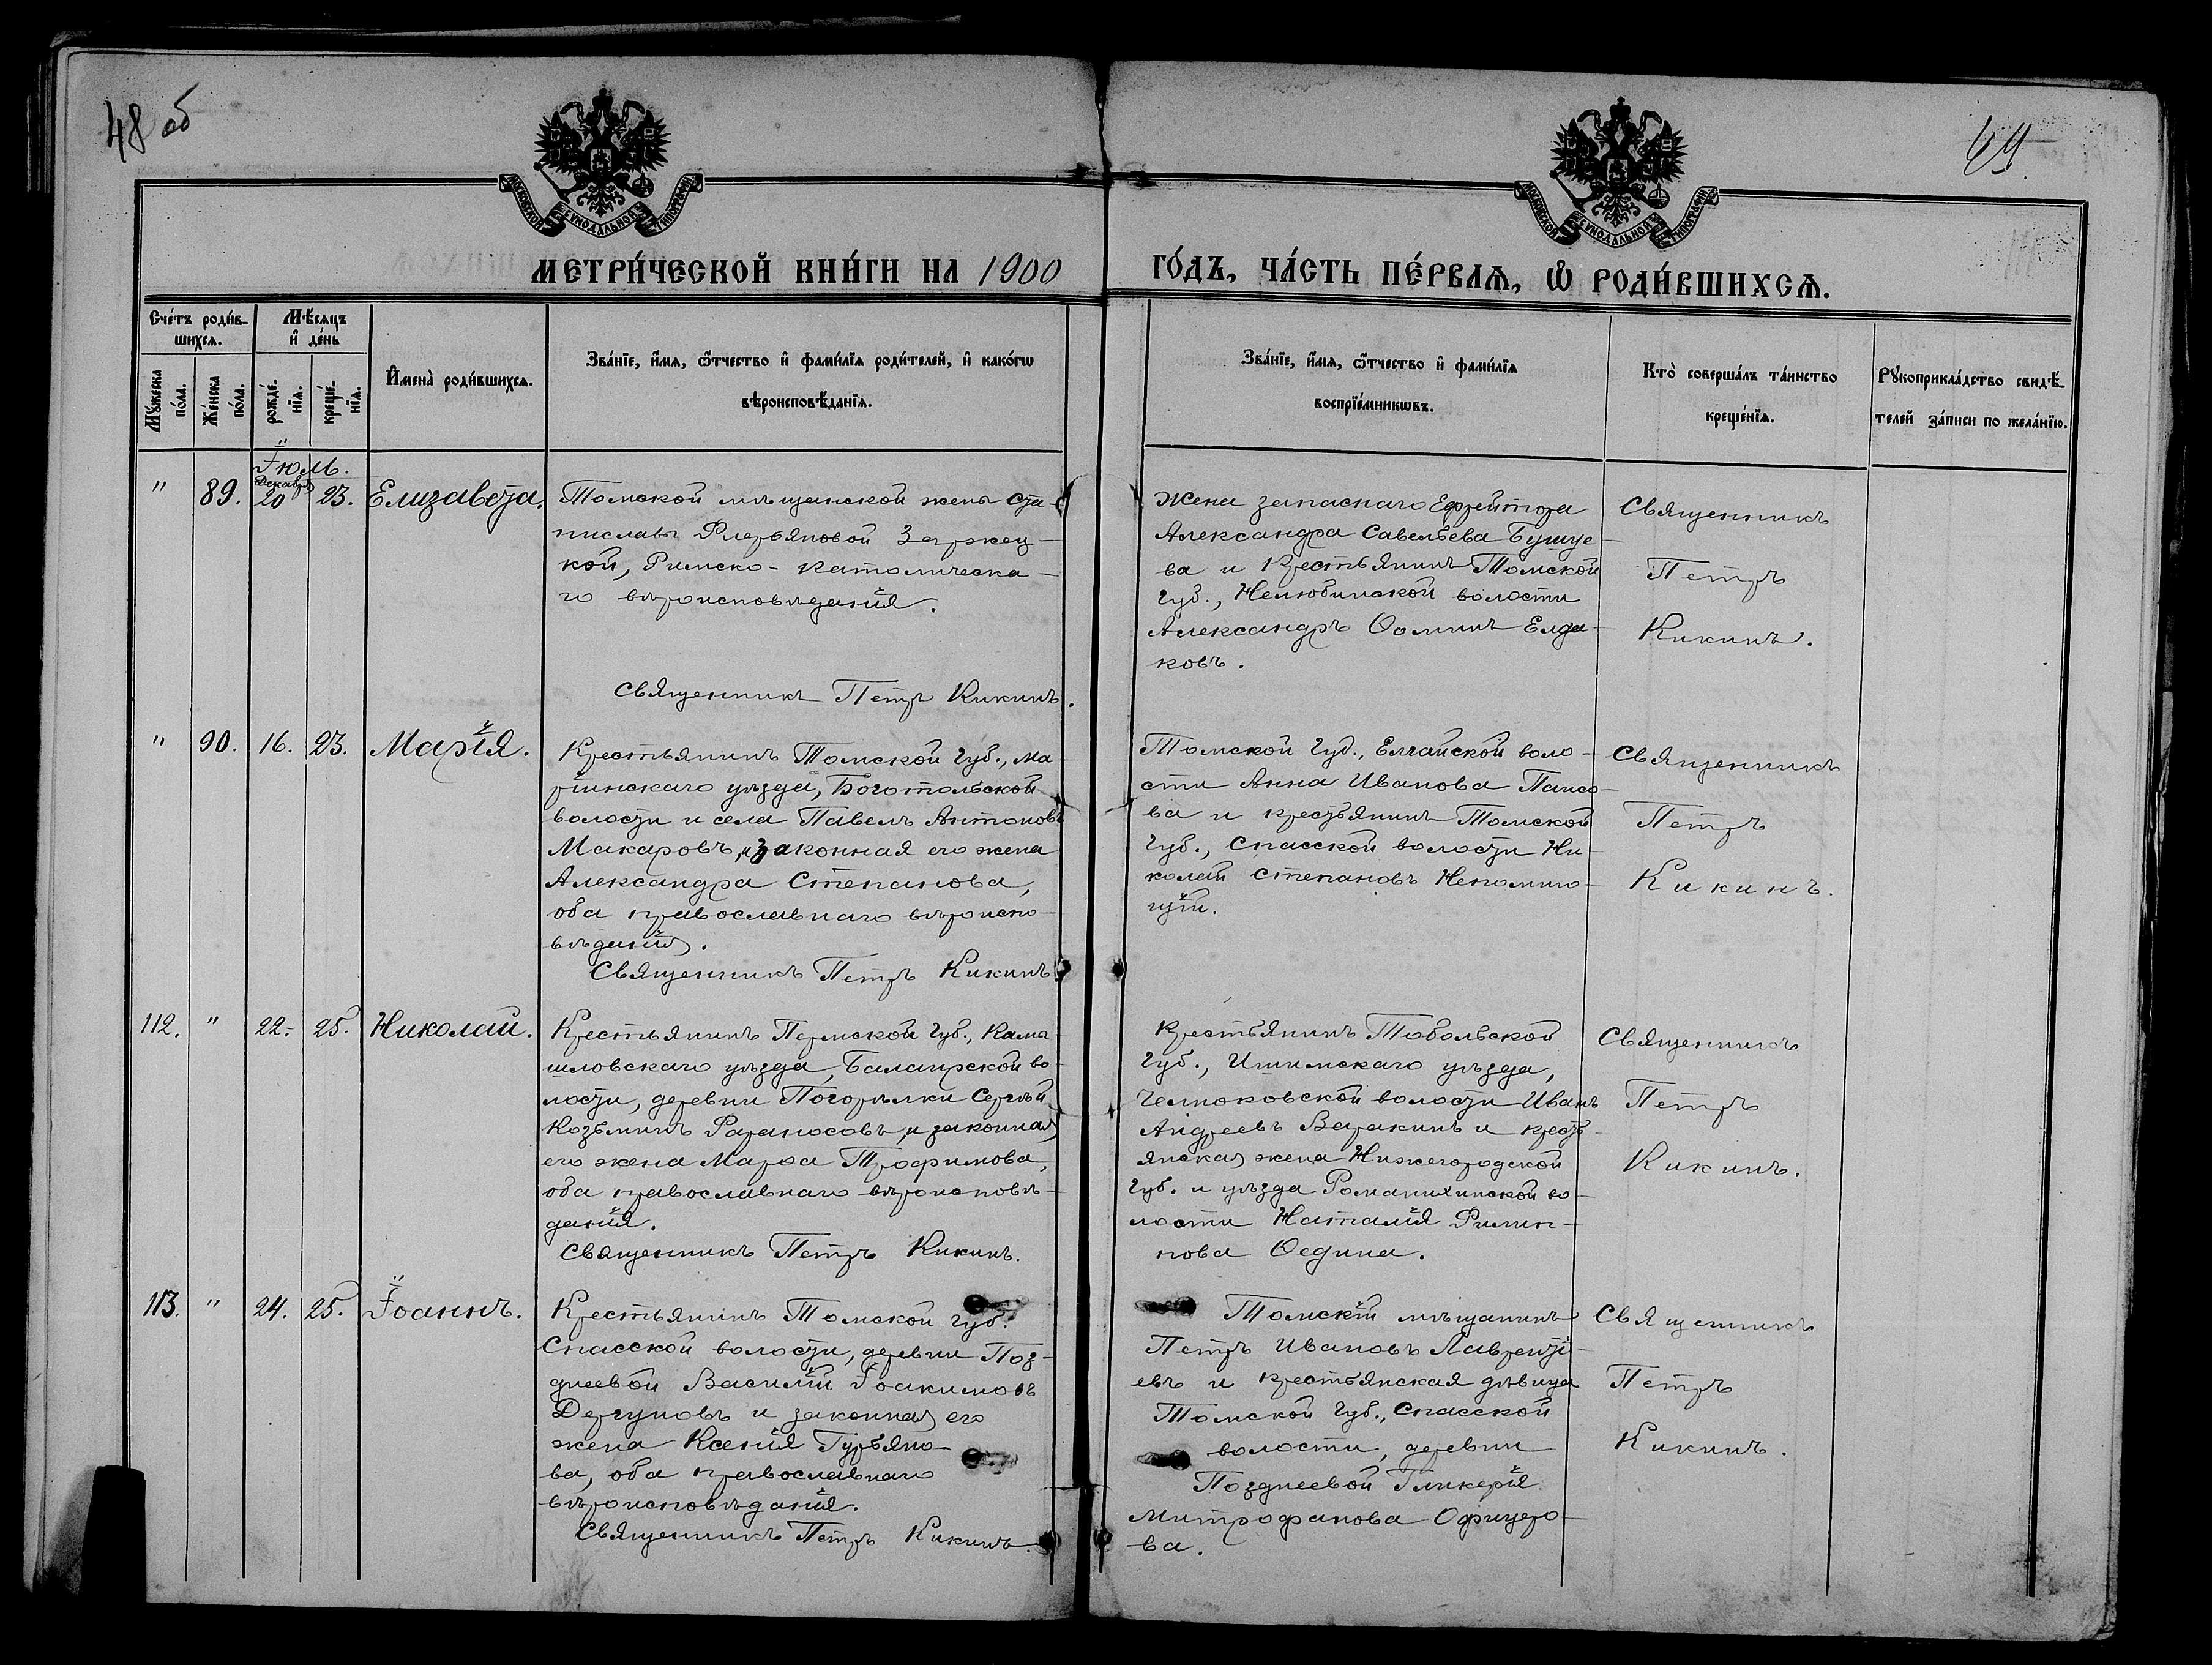 48 об
69
МОСКОВСКОЙ СѴНОДАЛЬНОЙ ТИПОГРАФІИ
МОСКОВСКОЙ СѴНОДАЛЬНОЙ ТИПОГРАФІИ
МЕТРИ́ЧЕСКОЙ КНИ́ГИ НА 1900
ГО́ДЪ, ЧА́СТЬ ПЕ́РВАѦ, Ѽ РОДИ́ВШИХСѦ.
Сче́тъ роди́в-
шихся.
Мѣ́сяцъ
и҆ де́нь
Му́жеска
по́ла.
Же́нска
по́ла.
рожде́-
нїя.
креще́-
нїя.
И҆мена̀ роди́вшихся.
Зва́нїе, и҆́мя, ѻ҆́тчество и҆ фами́лїя роди́телей, и҆ како́гѡ
вѣроисповѣ́данїя.
Зва́нїе, и҆́мя, ѻ҆́тчество и҆ фами́лїя
воспрїе́мникѡвъ.
Кто̀ соверша́лъ та́инство
креще́нїя.
Рукоприкла́дство свидѣ́-
телей за́писи по жела́нїю.
Іюль.
Декабрь
" 89. 20 23. Елизавета.
Томской мѣщанской жены Ста-
ниславы Флерьяновой Заржец-
кой, Римско-Католическа-
го вѣроисповѣданія.
Священникъ Петръ Кикинъ.
Жена запаснаго Ефрейтора
Александра Савельева Бушуе-
ва и Крестьянинъ Томской
Губ., Нелюбинской волости
Александръ Ѳоминъ Елда-
ковъ.
Священникъ
Петръ
Кикинъ.
" 90. 16. 23. Марія.
Крестьянинъ Томской Губ., Ма-
ріинскаго уѣзда, Боготольской
волости и села Павелъ Антоновъ
Макаровъ, и законная его жена
Александра Степанова,
оба православнаго вѣроиспо-
вѣданія.
Священникъ Петръ Кикинъ.
Томской Губ., Елгайской воло-
сти Анна Иванова
ва и крестьянинъ Томской
Губ., Спасской волости Ни-
колай Степановъ Непомню-
щій.
Священникъ
Петръ
Кикинъ.
112. " 22. 25. Николай.
Крестьянинъ Пермской Губ., Камы-
шловскаго уѣзда, Балаирской во-
лости, деревни Погорѣлки Сергѣй
Козьминъ Рараносовъ, и законная
его жена Марѳа Трофимова,
оба православнаго вѣроисповѣ-
данія.
Священникъ Петръ Кикинъ.
Крестьянинъ Тобольской
Губ., Ишимскаго уѣзда,
Челноковской волости Иванъ
Андреевъ Варакинъ и кресть-
янская жена Нижегородской
Губ. и уѣзда Романихинской во-
лости Наталія Филип-
пова Ѳедина.
Священникъ
Петръ
Кикинъ.
113. " 24. 25. Іоаннъ.
Крестьянинъ Томской Губ.
Спасской волости, деревни Поз-
днеевой Василій Іоакимовъ
Дергуновъ и законная его
жена Ксенія Гурьяно-
ва, оба православнаго
вѣроисповѣданія.
Священникъ Петръ Кикинъ.
Томскій мѣщанинъ
Петръ Ивановъ Лавренті-
евъ и крестьянская дѣвица
Томской Губ., Спасской
волости, деревни
Позднеевой Гликерія
Митрофанова Офицеро-
ва.
Священникъ
Петръ
Кикинъ.